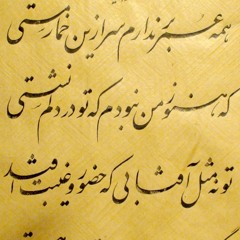 همه عمر برندارم سر ازین خمار مستی
که هنوز من نبودم که تو در دلم نشستی
تو نه مثل آفتابی که حضور و غیبت افتد